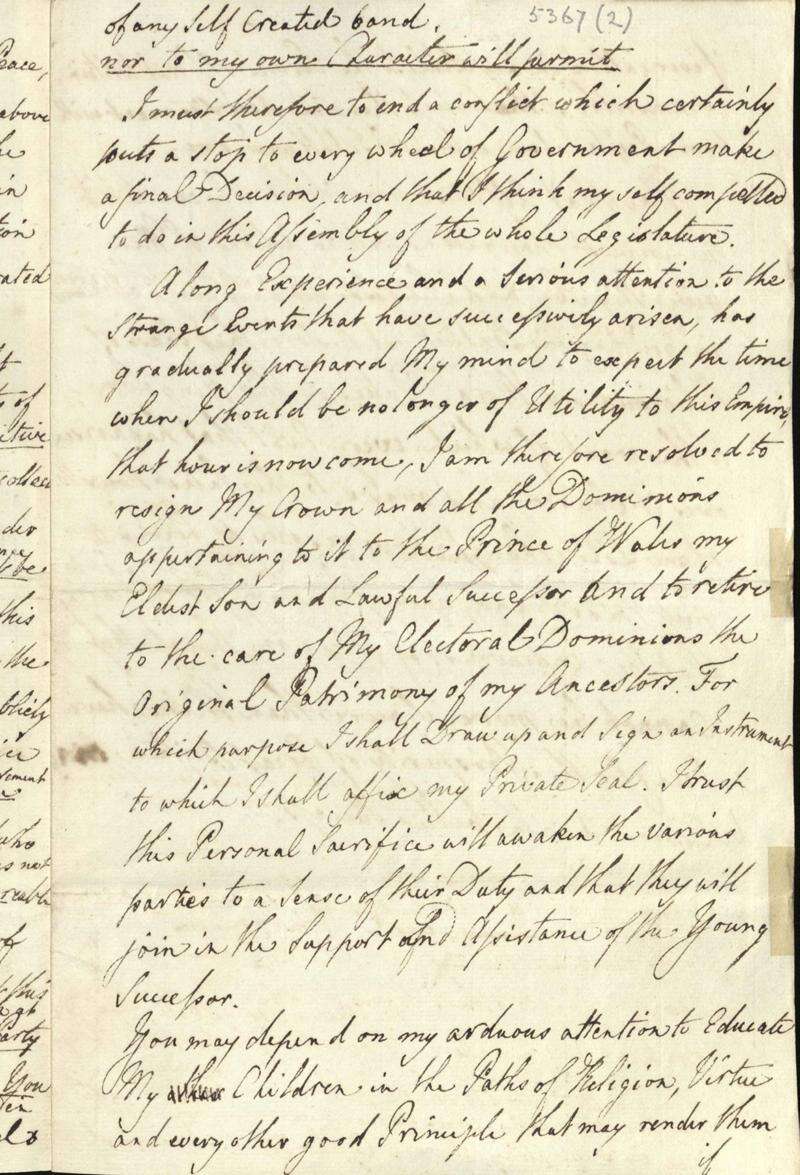 5367 (2)
of any self Created band.
nor to my own Character will permit
I must therefore to end a conflict which certainly
puts a stop to every wheel of Government make
a final Decision, and that I think my self compelled
to do in this Assembly of the whole Legislature.
A long Experience and a Serious attention to the
Strange Events that have successively arisen, has
gradually prepared My mind to expect the time
when I should be no longer of Utility to this Empire,
that hour is now come, I am therefore resolved to
resign My Crown and all the Dominions
appertaining to it to the Prince of Wales my
Eldest Son and Lawful Successor and to retire
to the care of My Electoral Dominions the
Original Patrimony of my Ancestors. For
which purpose I shall Draw up and Sign an Instrument
to which I shall affix my Private Seal. I trust
this Personal Sacrifice will awaken the various
parties to a sense of their Duty and that they will
join in the Support and Assistance of the Young
Successor.
You may depend on my arduous attention to Educate
My Children in the Paths of Religion, Virtue
and every other good Principle that may render them
if